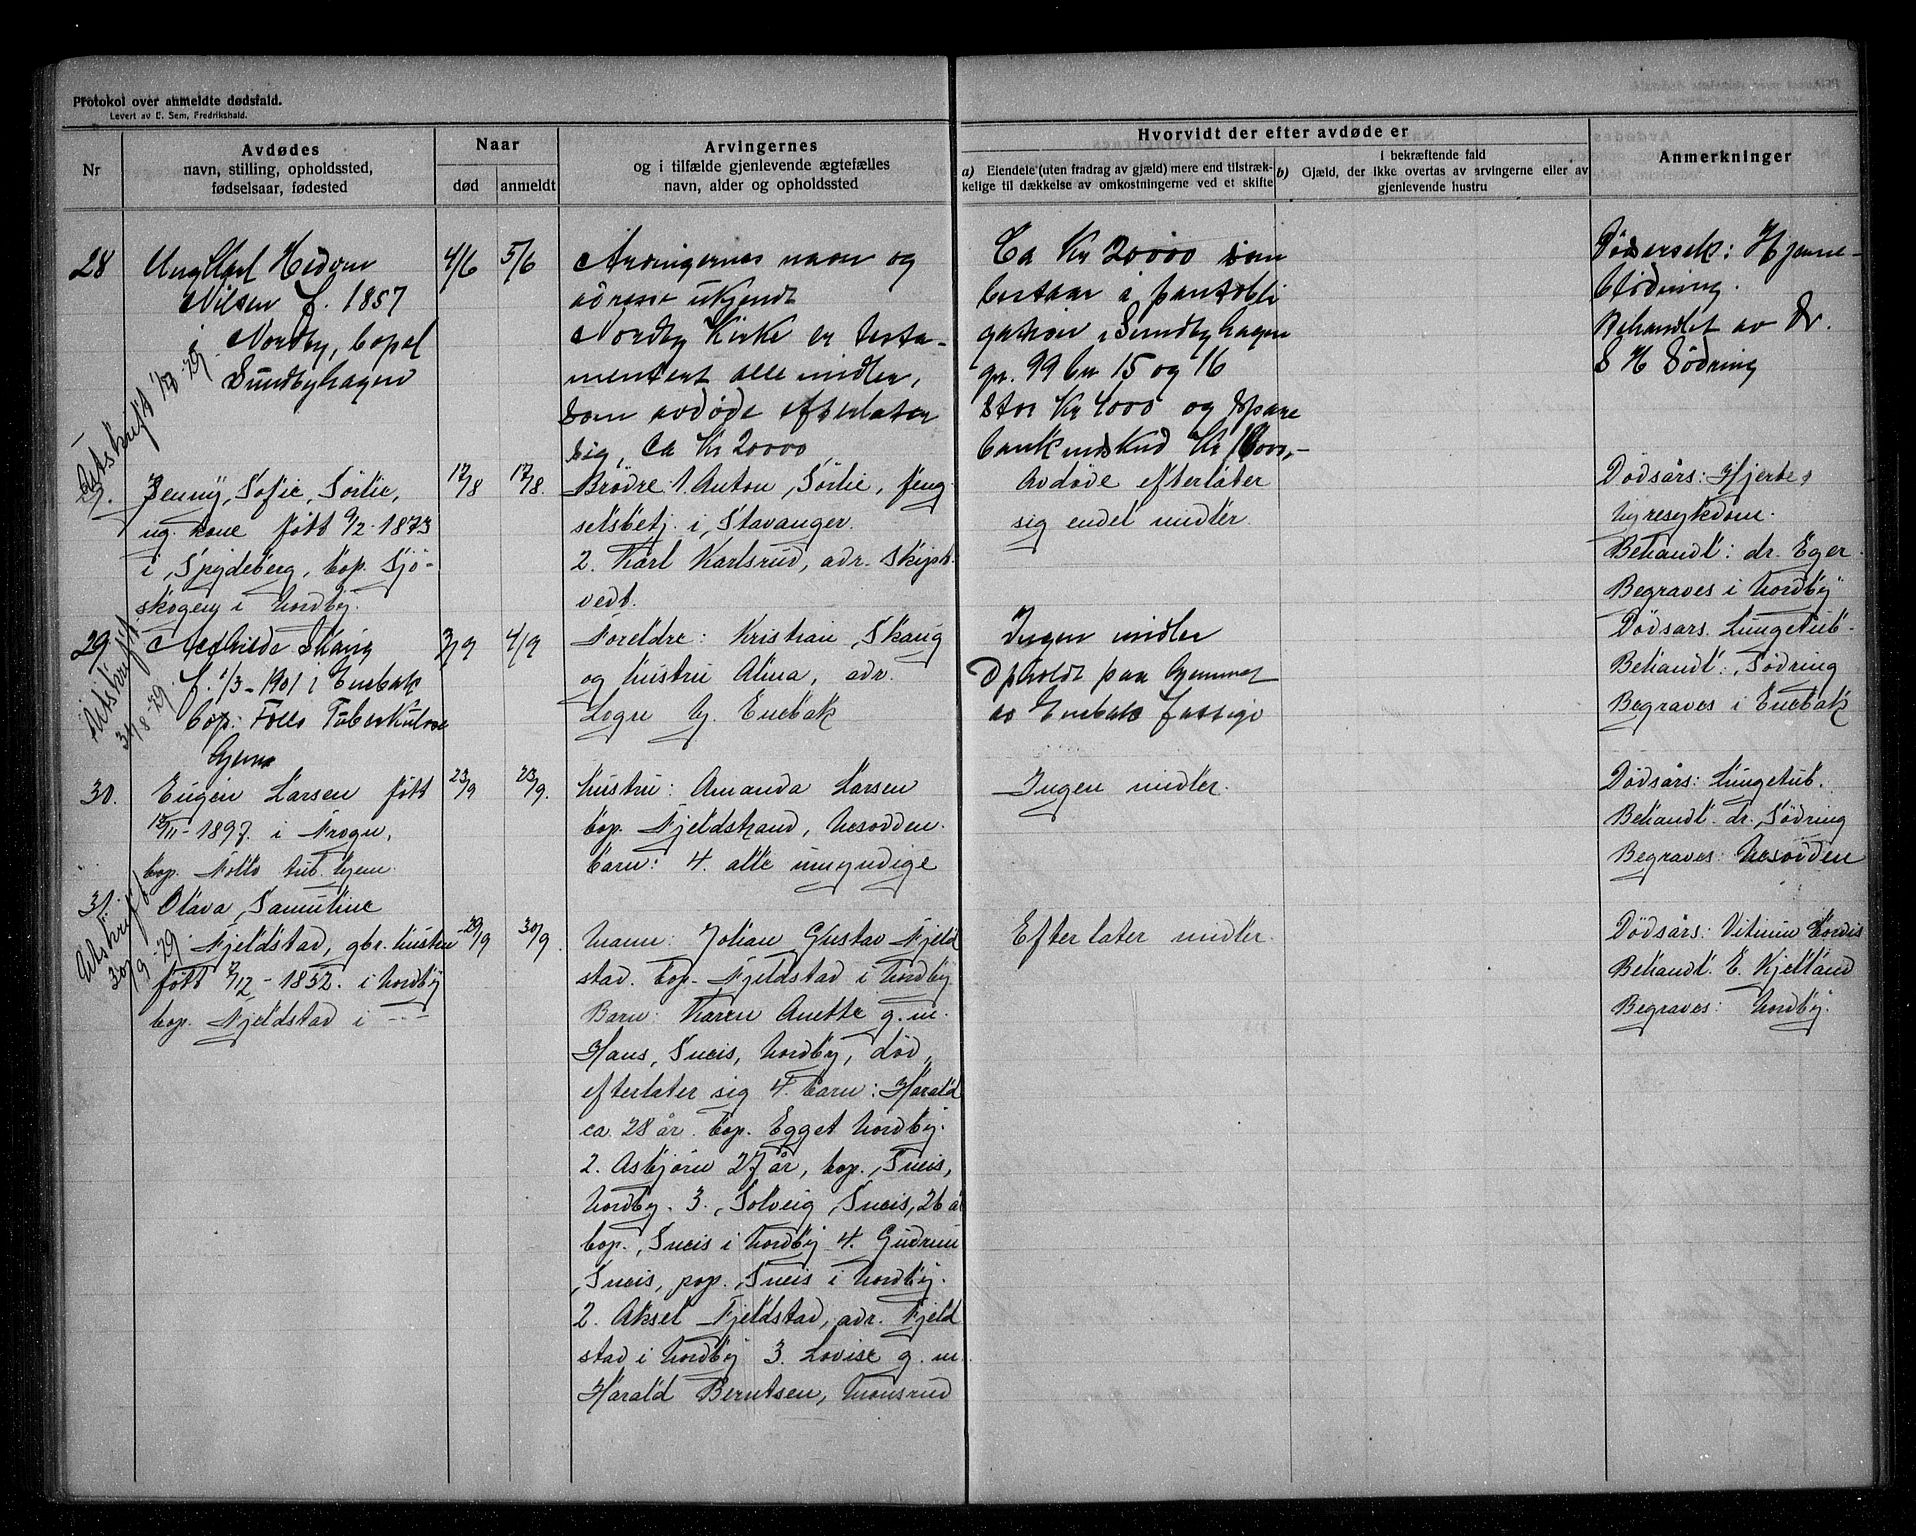 Protokol over anmeldte dødsfald.
Levert av E. Sem, Fredrikshald.
Nr
Avdødes
navn, stilling, opholdssted,
fødselsaar, fødested
Naar
død
anmeldt
Arvingernes
og i tilfælde gjenlevende ægtefælles
navn, alder og opholdssted
Hvorvidt der efter avdøde er
a) Eiendele (uten fradrag av gjæld) mere end tilstræk-
kelige til dækkelse av omkostningerne ved et skifte
I bekræftende fald
b) Gjæld, der ikke overtas av arvingerne eller av
gjenlevende hustru
Anmerkninger
28
Ungkarl Hedvin
Nilsen f. 1857
i Nordby, bopel
Sundbyhagen
4/6
5/6
Arvingernes navn og
adresse ukjendt
Nordby Kirke er testa-
mentert alle midler,
som avdøde efterlater
sig, ca Kr 20000
Ca Kr 20000 som
bestaar i pantobli
gationer i Sundbyhagen
gr. 99 br 15 og 16
stor Kr 4000 og spare
bankindskud Kr 16000,-
Dødsårsak: Hjerne-
blødning.
Behandlet av Dr.
S H Sødring
Utskrift 1/8-29.
Jenny Sofie Sørlie,
ug. kone født 9/2-1873
i Spydeberg, bop. Sjø-
skogen i Nordby.
12/8
12/8.
Brødre 1. Anton Sørlie, feng
selsbetj. i Stavanger.
2. Karl Karlsrud, adr. Skipt-
vedt.
Avdøde efterlater
sig endel midler.
Dødsårs: Hjerte,
nyresykdom.
Behandl: dr. Eger
Begraves i Nordby
Utskrift
31/8-29.
29
Skaug
f. 1/3-1901 i Enebak
bop: Follo Tuberkulose
hjem
3/9
4/9
Foreldre: Kristian Skaug
og hustru Alma, adr.
Enebak
Ingen midler
Opholdt paa hjemmet
av Enebak fattige
Dødsårs. Lungetub-
Behandl: Sødring
Begraves i Enebak
30.
Eugen Larsen født
12/11-1897. i Frogn,
bop. Follo tub. hjem.
23/9
23/9.
Hustru: Amanda Larsen
bop. Fjeldstrand, Nesodden.
barn: 4. alle umyndige
Ingen midler.
Dødsårs: Lungetub.
Behandl. dr. Sødring
Begraves: Nesodden
31.
Olava Samuline
Fjeldstad, gbr. hustru
født 2/12-1852. i Nordby
bop. Fjeldstad i -"-
29/9
30/9.
Utskrift
30/9-29.
Mann: Johan Gustav Fjeld
stad. bop. Fjeldstad i Nordby.
Barn: Karen Anette g.m.
Hans Sneis, Nordby, død,
efterlater sig 4 barn: Harald
ca. 28 år. bop. Egget Nordby.
2. Asbjørn 27 år, bop. Sneis,
Nordby. 3. Solveig Sneis, 26 å
bop. Sneis i Nordby 4. Gudrun
Sneis, pop. Sneis i Nordby.
2. Aksel Fjeldstad, adr. Fjeld
stad i Nordby 3. Lovise g.m.
Harald Berntsen, Monsrud
Efterlater midler.
Dødsårs: Vitium Cordis
Behandl. E. Kjelland
Begraves: Nordby.